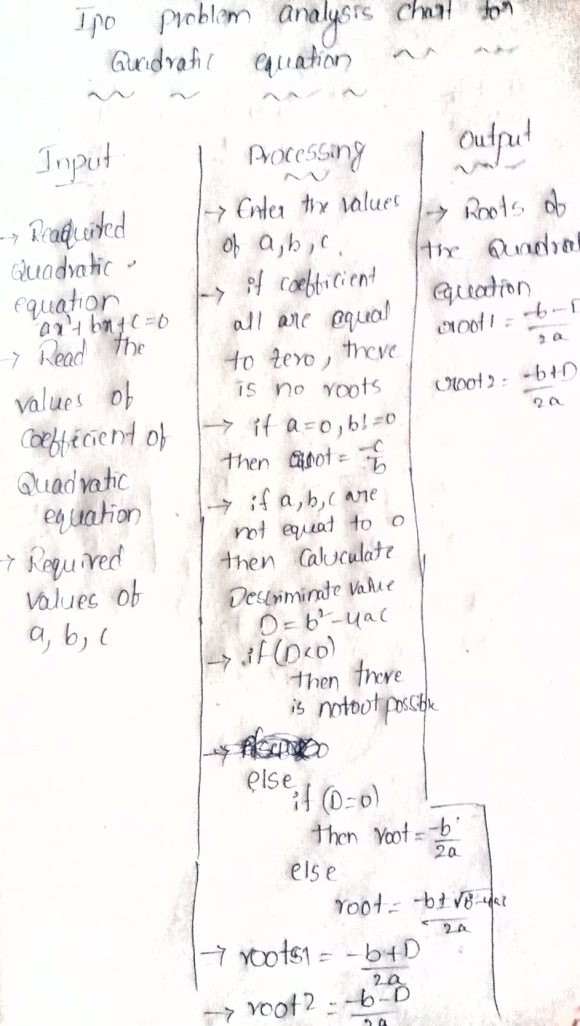 Ipo problem analysis chart for
Quadratic equation
Input
→ Reaquired
Quadratic
equation
ax²+bx+c=0
→ Read the
values of
coefficient of
Quadratic
equation
→ Required
values of
a, b, c
Processing
→ Enter the values
of a,b,c.
→ if coefficient
all are equal
to zero, there
is no roots
→ if a=0, b!=0
then root = -c/b
→ if a,b,c are
not equal to 0
then Caluculate
Descriminate value
D = b²-4ac
→ if (D<0)
then there
is notoot possible
→
else
if (D=0)
then root = -b/2a
else
root = -b±√b²-4ac/2a
→ roots1 = -b+D/2a
→ root2 = -b-D/2a
Output
→ Roots of
the Quadrat
equation
root1 = -b-D/2a
root2 = -b+D/2a